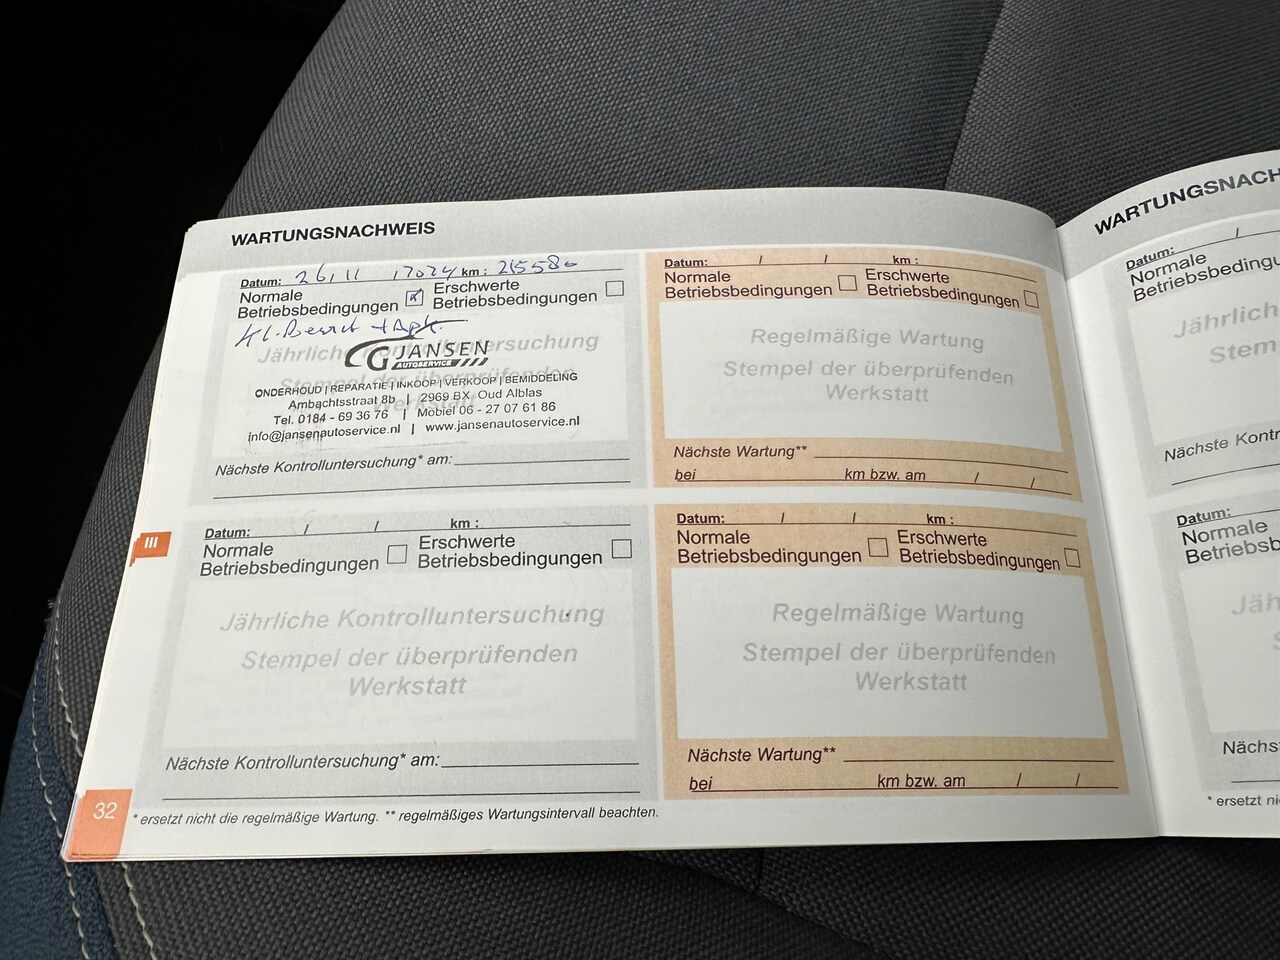 WARTUNGSNACHWEIS
Datum: 26/11 /2024 km: 215580
Normale
Betriebsbedingungen
Erschwerte
Betriebsbedingungen
Kl. + Apk.
Jährliche Kontrolluntersuchung
Stempel der überprüfenden
Werkstatt
CG JANSEN
AUTOSERVICE
ONDERHOUD | REPARATIE | INKOOP | VERKOOP | BEMIDDELING
Ambachtsstraat 8b | 2969 BX Oud Alblas
Tel. 0184 - 69 36 76 | Mobiel 06 - 27 07 61 86
info@jansenautoservice.nl | www.jansenautoservice.nl
Nächste Kontrolluntersuchung* am:
Datum: / / km :
Normale
Betriebsbedingungen
Erschwerte
Betriebsbedingungen
Regelmäßige Wartung
Stempel der überprüfenden
Werkstatt
Nächste Wartung**
bei km bzw. am / /
III
Datum: / / km :
Normale
Betriebsbedingungen
Erschwerte
Betriebsbedingungen
Jährliche Kontrolluntersuchung
Stempel der überprüfenden
Werkstatt
Nächste Kontrolluntersuchung* am:
Datum: / / km :
Normale
Betriebsbedingungen
Erschwerte
Betriebsbedingungen
Regelmäßige Wartung
Stempel der überprüfenden
Werkstatt
Nächste Wartung**
bei km bzw. am / /
32
* ersetzt nicht die regelmäßige Wartung. ** regelmäßiges Wartungsintervall beachten.
WARTUNGSNACH
Datum: /
Normale
Betriebsbedingu
Jährlich
Stem
Nächste Kontr
Datum:
Normale
Betriebsb
Jäh
Nächs
* ersetzt ni